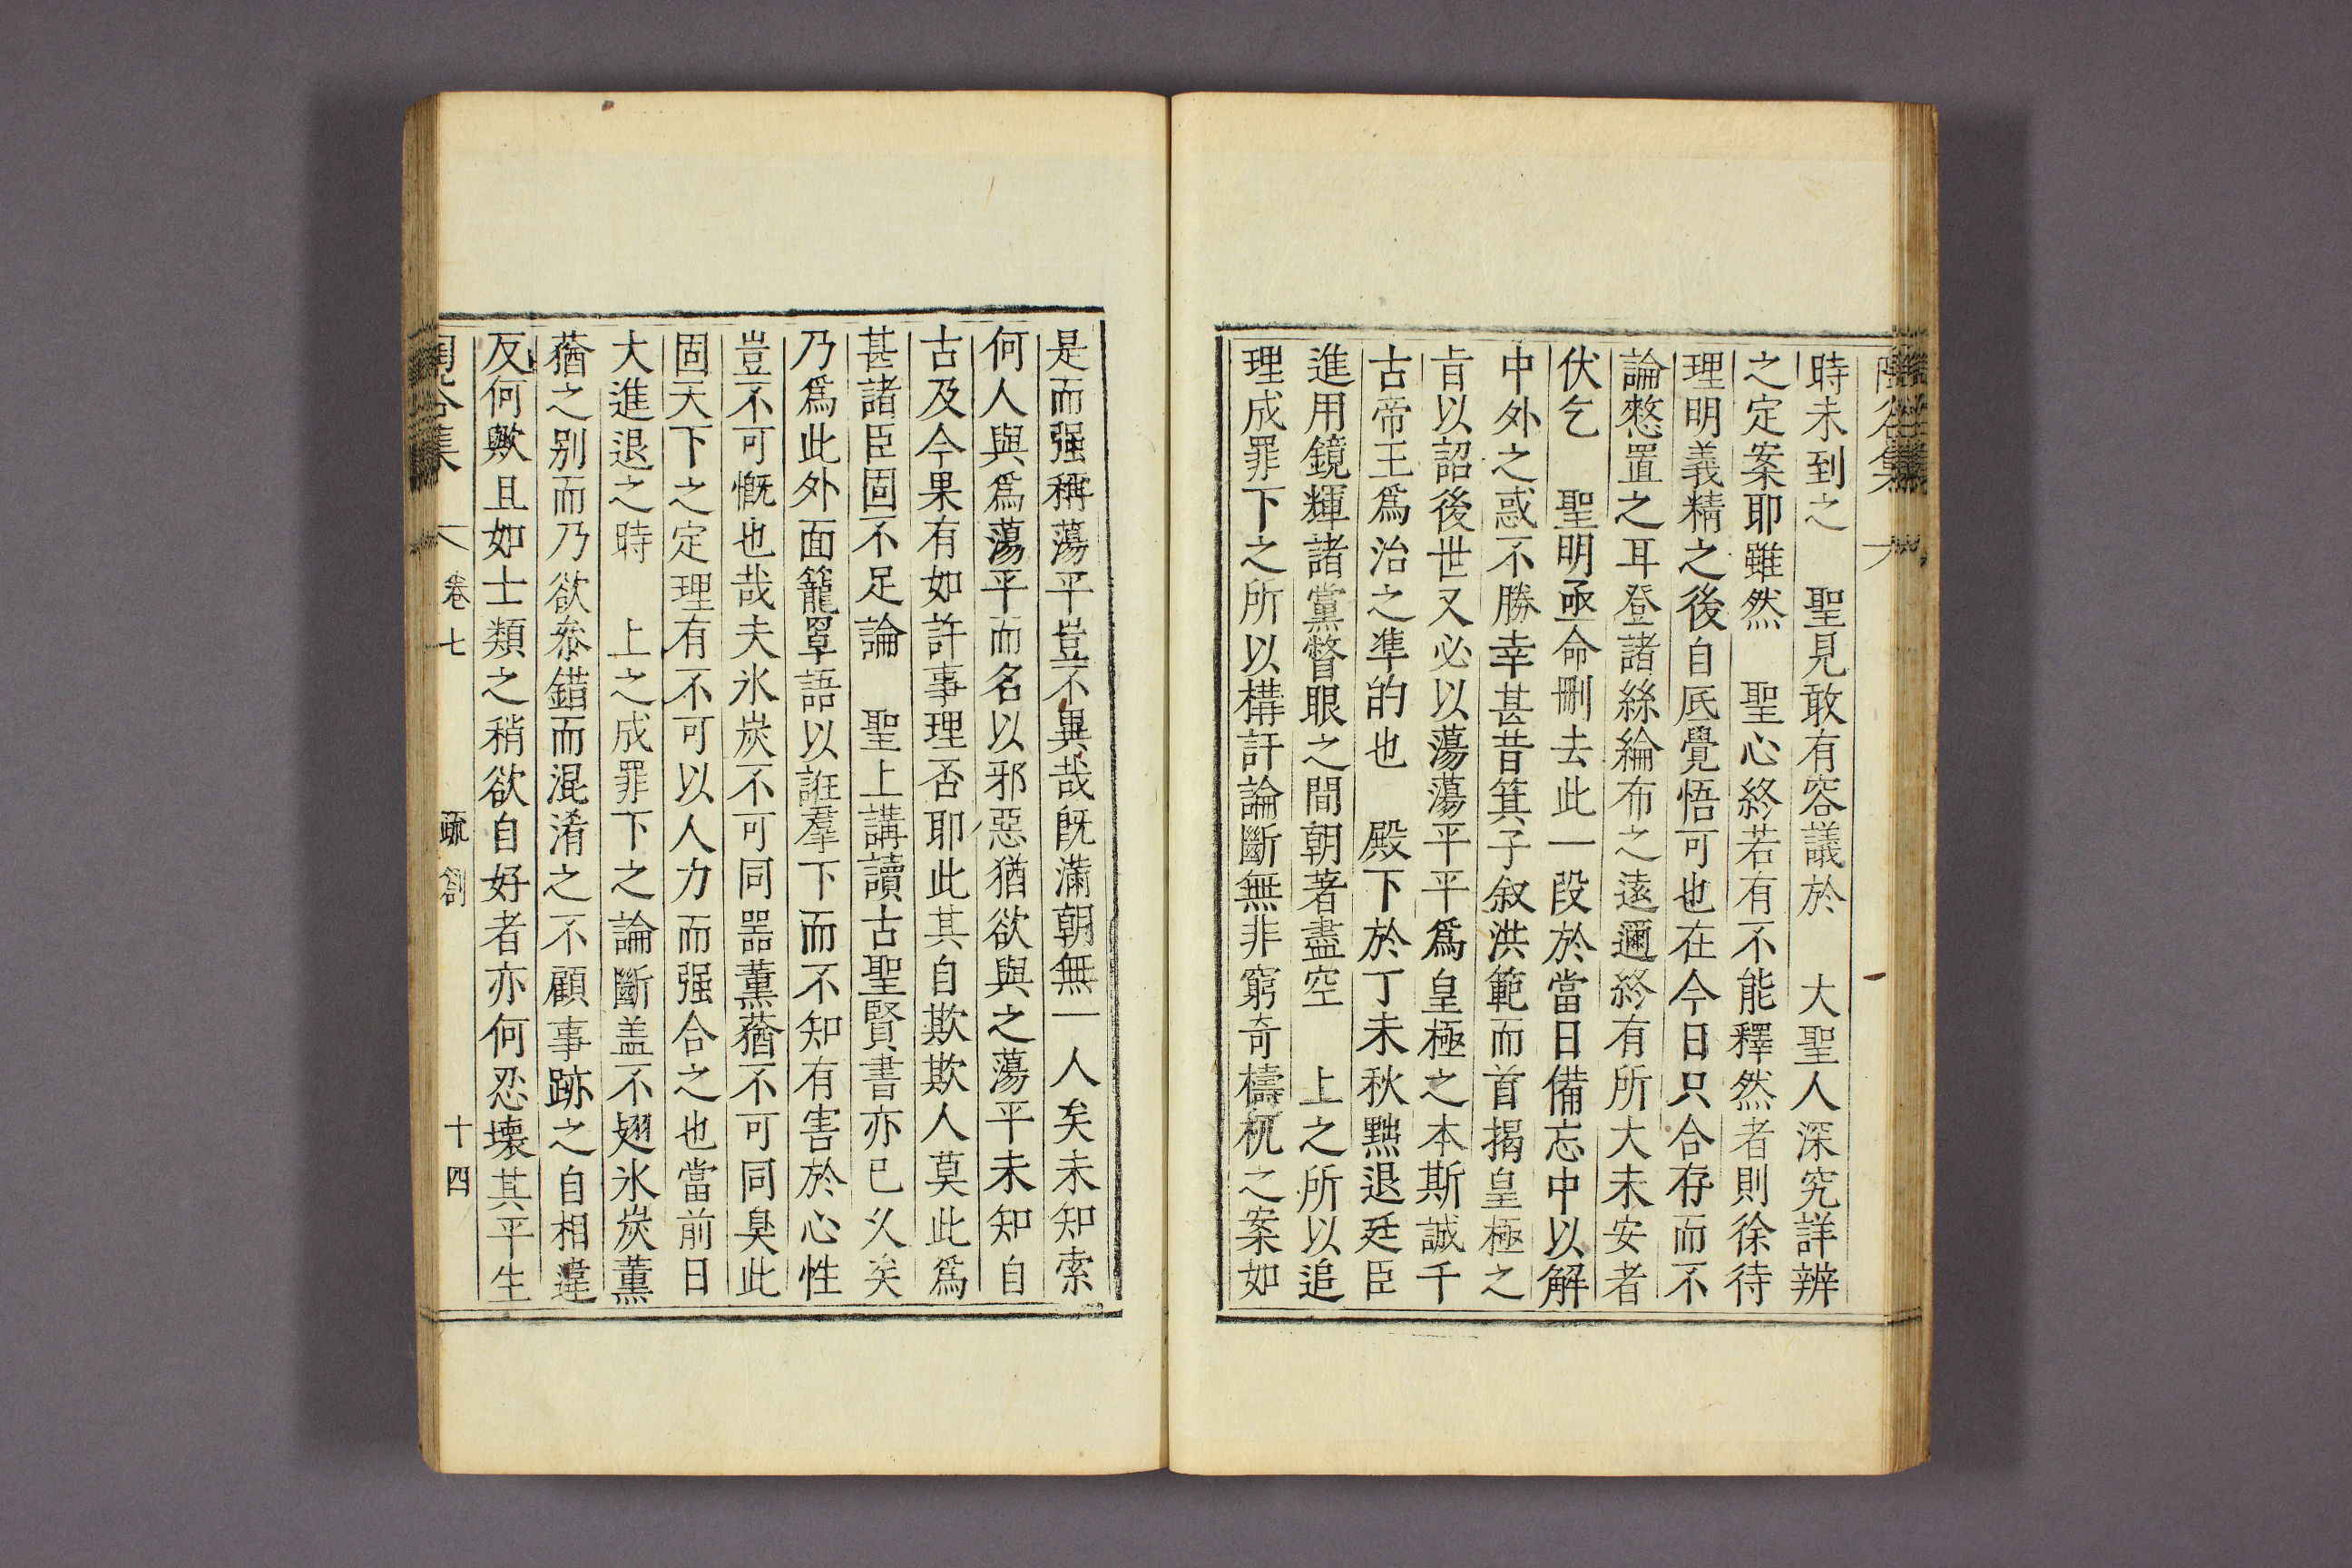 時未到之 聖見敢有容議於 大聖人深究詳辨
之定案耶雖然 聖心終若有不能釋然者則徐待
理明義精之後自底覺悟可也在今日只合存而不
論憗置之耳登諸絲綸布之遠邇終有所大未安者
伏乞 聖明亟命刪去此一段於當日備忘中以解
中外之惑不勝幸甚昔箕子叙洪範而首揭皇極之
㫖以詔後世又必以蕩蕩平平爲皇極之本斯誠千
古帝王爲治之準的也 殿下於丁未秋黜退廷臣
進用鏡輝諸黨瞥眼之間朝著盡空 上之所以追
理成罪下之所以構訐論斷無非窮奇檮杌之案如
是而强稱蕩平豈不異哉旣滿朝無一人矣未知索
何人與爲蕩平而名以邪惡猶欲與之蕩平未知自
古及今果有如許事理否耶此其自欺欺人莫此爲
甚諸臣固不足論 聖上講讀古聖賢書亦已乆矣
乃爲此外面籠罩語以誑羣下而不知有害於心性
豈不可慨也哉夫氷炭不可同器薰蕕不可同臭此
固天下之定理有不可以人力而强合之也當前日
大進退之時 上之成罪下之論斷盖不翅氷炭薰
蕕之别而乃欲叅錯而混淆之不顧事跡之自相違
反何歟且如士類之稍欲自好者亦何忍壞其平生
卷七 疏劄 十四